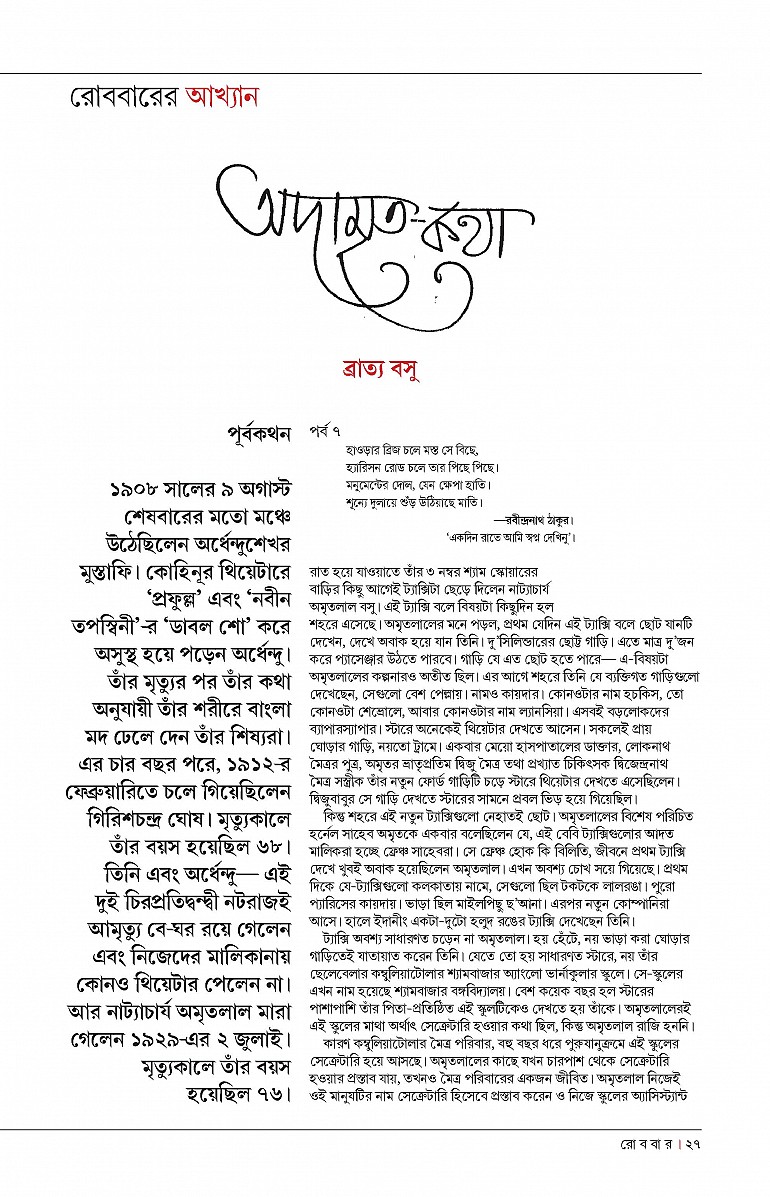 রোববারের আখ্যান
অদামৃত-কথা
ব্রাত্য বসু
পূর্বকথন
১৯০৮ সালের ৯ অগাস্ট
শেষবারের মতো মঞ্চে
উঠেছিলেন অর্ধেন্দুশেখর
মুস্তাফি। কোহিনূর থিয়েটারে
‘প্রফুল্ল’ এবং ‘নবীন
তপস্বিনী’-র ‘ডাবল শো’ করে
অসুস্থ হয়ে পড়েন অর্ধেন্দু।
তাঁর মৃত্যুর পর তাঁর কথা
অনুযায়ী তাঁর শরীরে বাংলা
মদ ঢেলে দেন তাঁর শিষ্যরা।
এর চার বছর পরে, ১৯১২-র
ফেব্রুয়ারিতে চলে গিয়েছিলেন
গিরিশচন্দ্র ঘোষ। মৃত্যুকালে
তাঁর বয়স হয়েছিল ৬৮।
তিনি এবং অর্ধেন্দু— এই
দুই চিরপ্রতিদ্বন্দ্বী নটরাজই
আমৃত্যু বে-ঘর রয়ে গেলেন
এবং নিজেদের মালিকানায়
কোনও থিয়েটার পেলেন না।
আর নাট্যাচার্য অমৃতলাল মারা
গেলেন ১৯২৯-এর ২ জুলাই।
মৃত্যুকালে তাঁর বয়স
হয়েছিল ৭৬।
পর্ব ৭
হাওড়ার ব্রিজ চলে মস্ত সে বিছে,
হ্যারিসন রোড চলে তার পিছে পিছে।
মনুমেন্টের দোল, যেন ক্ষেপা হাতি।
শূন্যে দুলায়ে শুঁড় উঠিয়াছে মাতি।
—রবীন্দ্রনাথ ঠাকুর।
‘একদিন রাতে আমি স্বপ্ন দেখিনু’।
রাত হয়ে যাওয়াতে তাঁর ৩ নম্বর শ্যাম স্কোয়ারের
বাড়ির কিছু আগেই ট্যাক্সিটা ছেড়ে দিলেন নাট্যাচার্য
অমৃতলাল বসু। এই ট্যাক্সি বলে বিষয়টা কিছুদিন হল
শহরে এসেছে। অমৃতলালের মনে পড়ল, প্রথম যেদিন এই ট্যাক্সি বলে ছোট যানটি
দেখেন, দেখে অবাক হয়ে যান তিনি। দু’সিলিন্ডারের ছোট্ট গাড়ি। এতে মাত্র দু’জন
করে প্যাসেঞ্জার উঠতে পারবে। গাড়ি যে এত ছোট হতে পারে— এ-বিষয়টা
অমৃতলালের কল্পনারও অতীত ছিল। এর আগে শহরে তিনি যে ব্যক্তিগত গাড়িগুলো
দেখেছেন, সেগুলো বেশ পেল্লায়। নামও কায়দার। কোনওটার নাম হচকিস, তো
কোনওটা শেভ্রোলে, আবার কোনওটার নাম ল্যানসিয়া। এসবই বড়লোকদের
ব্যাপারস্যাপার। স্টারে অনেকেই থিয়েটার দেখতে আসেন। সকলেই প্রায়
ঘোড়ার গাড়ি, নয়তো ট্রামে। একবার মেয়ো হাসপাতালের ডাক্তার, লোকনাথ
মৈত্রর পুত্র, অমৃতর ভ্রাতৃপ্রতিম দ্বিজু মৈত্র তথা প্রখ্যাত চিকিৎসক দ্বিজেন্দ্রনাথ
মৈত্র সস্ত্রীক তাঁর নতুন ফোর্ড গাড়িটি চড়ে স্টারে থিয়েটার দেখতে এসেছিলেন।
দ্বিজুবাবুর সে গাড়ি দেখতে স্টারের সামনে প্রবল ভিড় হয়ে গিয়েছিল।
কিন্তু শহরে এই নতুন ট্যাক্সিগুলো নেহাতই ছোট। অমৃতলালের বিশেষ পরিচিত
হর্নেল সাহেব অমৃতকে একবার বলেছিলেন যে, এই বেবি ট্যাক্সিগুলোর আদত
মালিকরা হচ্ছে ফ্রেঞ্চ সাহেবরা। সে ফ্রেঞ্চ হোক কি বিলিতি, জীবনে প্রথম ট্যাক্সি
দেখে খুবই অবাক হয়েছিলেন অমৃতলাল। এখন অবশ্য চোখ সয়ে গিয়েছে। প্রথম
দিকে যে-ট্যাক্সিগুলো কলকাতায় নামে, সেগুলো ছিল টকটকে লালরঙা। পুরো
প্যারিসের কায়দায়। ভাড়া ছিল মাইলপিছু ছ’আনা। এরপর নতুন কোম্পানিরা
আসে। হালে ইদানীং একটা-দুটো হলুদ রঙের ট্যাক্সি দেখেছেন তিনি।
ট্যাক্সি অবশ্য সাধারণত চড়েন না অমৃতলাল। হয় হেঁটে, নয় ভাড়া করা ঘোড়ার
গাড়িতেই যাতায়াত করেন তিনি। যেতে তো হয় সাধারণত স্টারে, নয় তাঁর
ছেলেবেলার কম্বুলিয়াটোলার শ্যামবাজার অ্যাংলো ভার্নাকুলার স্কুলে। সে-স্কুলের
এখন নাম হয়েছে শ্যামবাজার বঙ্গবিদ্যালয়। বেশ কয়েক বছর হল স্টারের
পাশাপাশি তাঁর পিতা-প্রতিষ্ঠিত এই স্কুলটিকেও দেখতে হয় তাঁকে। অমৃতলালেরই
এই স্কুলের মাথা অর্থাৎ সেক্রেটারি হওয়ার কথা ছিল, কিন্তু অমৃতলাল রাজি হননি।
কারণ কম্বুলিয়াটোলার মৈত্র পরিবার, বহু বছর ধরে পুরুষানুক্রমে এই স্কুলের
সেক্রেটারি হয়ে আসছে। অমৃতলালের কাছে যখন চারপাশ থেকে সেক্রেটারি
হওয়ার প্রস্তাব যায়, তখনও মৈত্র পরিবারের একজন জীবিত। অমৃতলাল নিজেই
ওই মানুষটির নাম সেক্রেটারি হিসেবে প্রস্তাব করেন ও নিজে স্কুলের অ্যাসিস্ট্যান্ট
রো ব বা র । ২৭